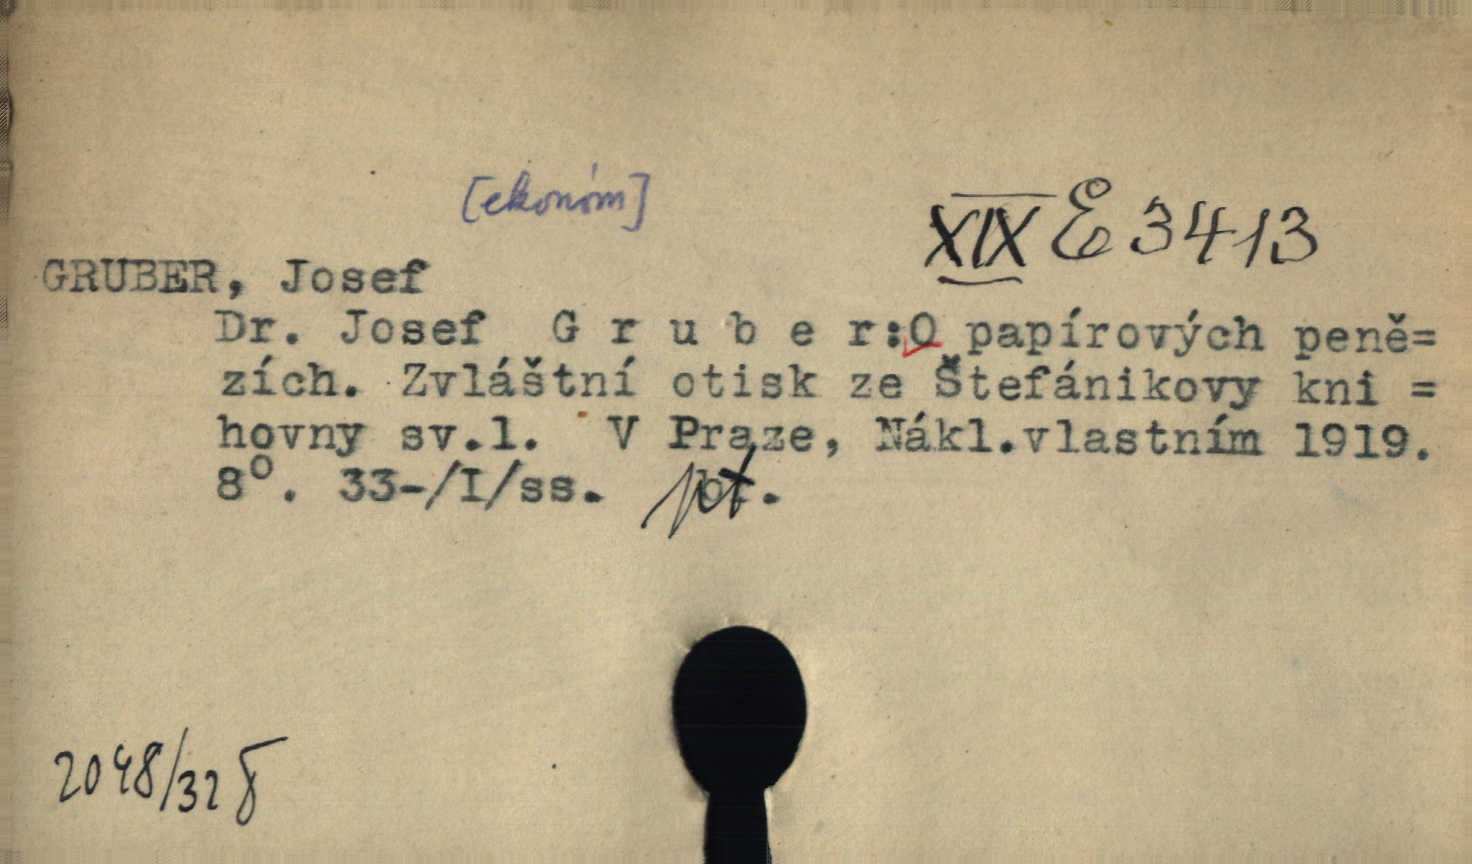 [ekonóm]
XIX E 3413
GRUBER, Josef
Dr. Josef G r u b e r:O papírových peně=
zích. Zvláštní otisk ze Štefánikovy kni =
hovny sv.l. V Praze, Nákl.vlastním 1919.
8°. 33-/I/ss.
2048/32